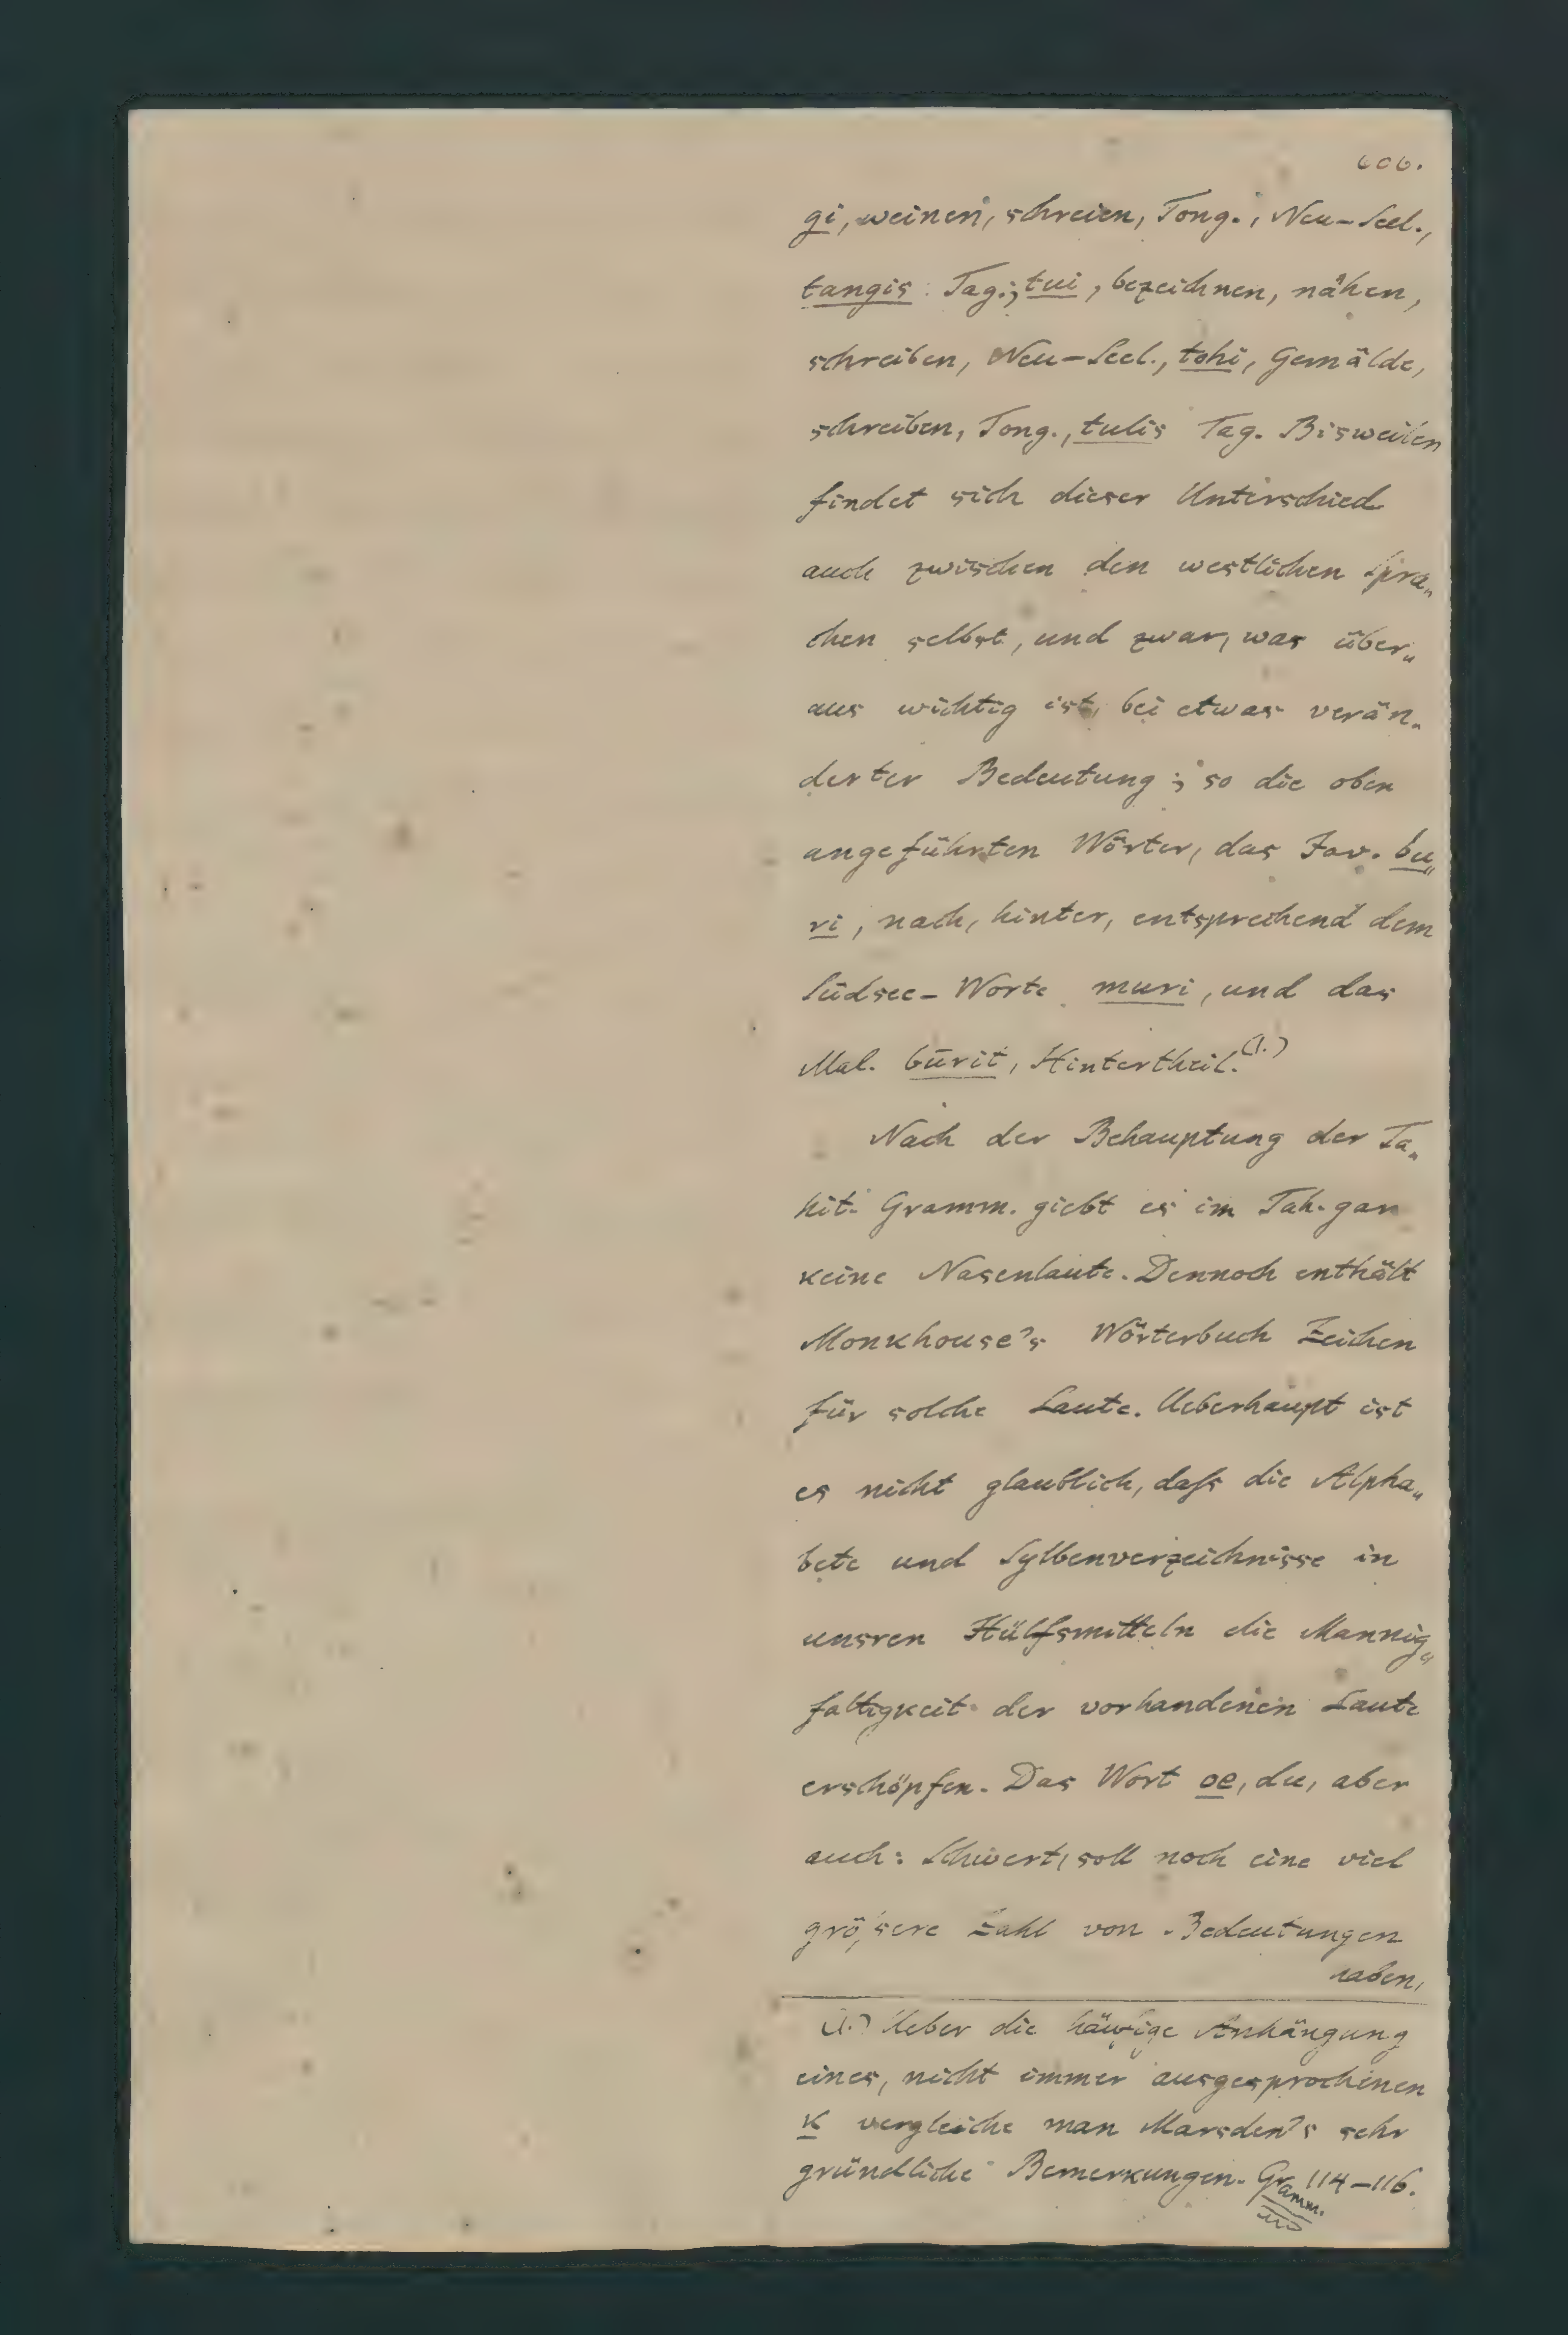 606.
gi, weinen, schreien, Tong., Neu-Seel.,
tangis Tag.; tui, bezeichnen, nähen,
schreiben, Neu-Seel., tohi, Gemälde,
schreiben, Tong., tulis Tag. Bisweilen
findet sich dieser Unterschied
auch zwischen den westlichen Spra„
chen selbst, und zwar, was über„
aus wichtig ist, bei etwas verän„
derter Bedeutung; so die oben
angeführten Wörter, das Jav. bu„
ri, nach, hinter, entsprechend dem
Südsee-Worte muri, und das
Mal. būrit, Hintertheil.(1.)
Nach der Behauptung der Ta„
hit. Gramm. giebt es im Tah. gar
keine Nasenlaute. Dennoch enthält
Monkhouse's Wörterbuch Zeichen
für solche Laute. Ueberhaupt ist
es nicht glaublich, daſs die Alpha„
bete und Sylbenverzeichnisse in
unsren Hülfsmitteln die Mannig„
faltigkeit der vorhandenen Laute
erschöpfen. Das Wort oe, du, aber
auch: Schwert, soll noch eine viel
gröſsere Zahl von Bedeutungen
haben,
(1.) Ueber die häufige Anhängung
eines, nicht immer ausgesprochenen
k vergleiche man Marsden's sehr
gründliche Bemerkungen. Gramm. 114-116.